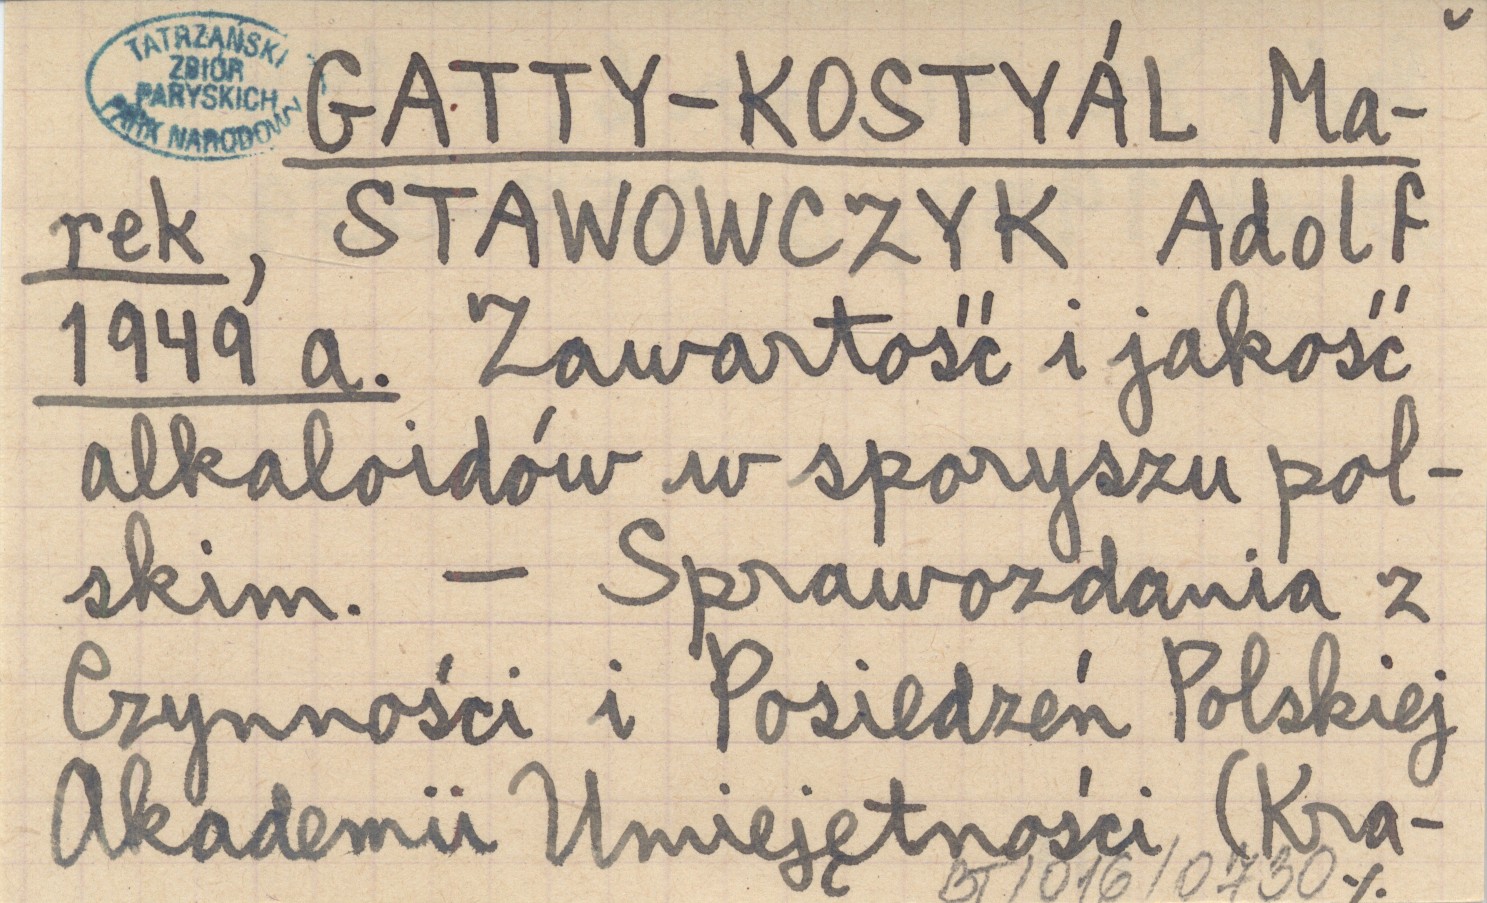 TATRZAŃSKI
ZBIÓR
PARYSKICH
PARK NARODOWY
GATTY-KOSTYÁL Ma-
rek, STAWOWCZYK Adolf
1949 a. Zawartość i jakość
alkaloidów w sporyszu pol-
skim. — Sprawozdania z
Czynności i Posiedzeń Polskiej
Akademii Umiejętności (Kra-
BT/016/0730 ./.